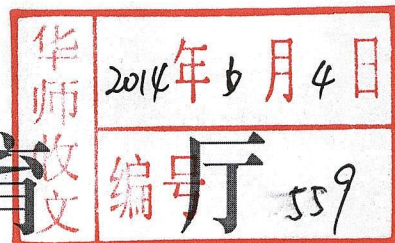 华师收文
2014年6月4日
编号 559
育厅